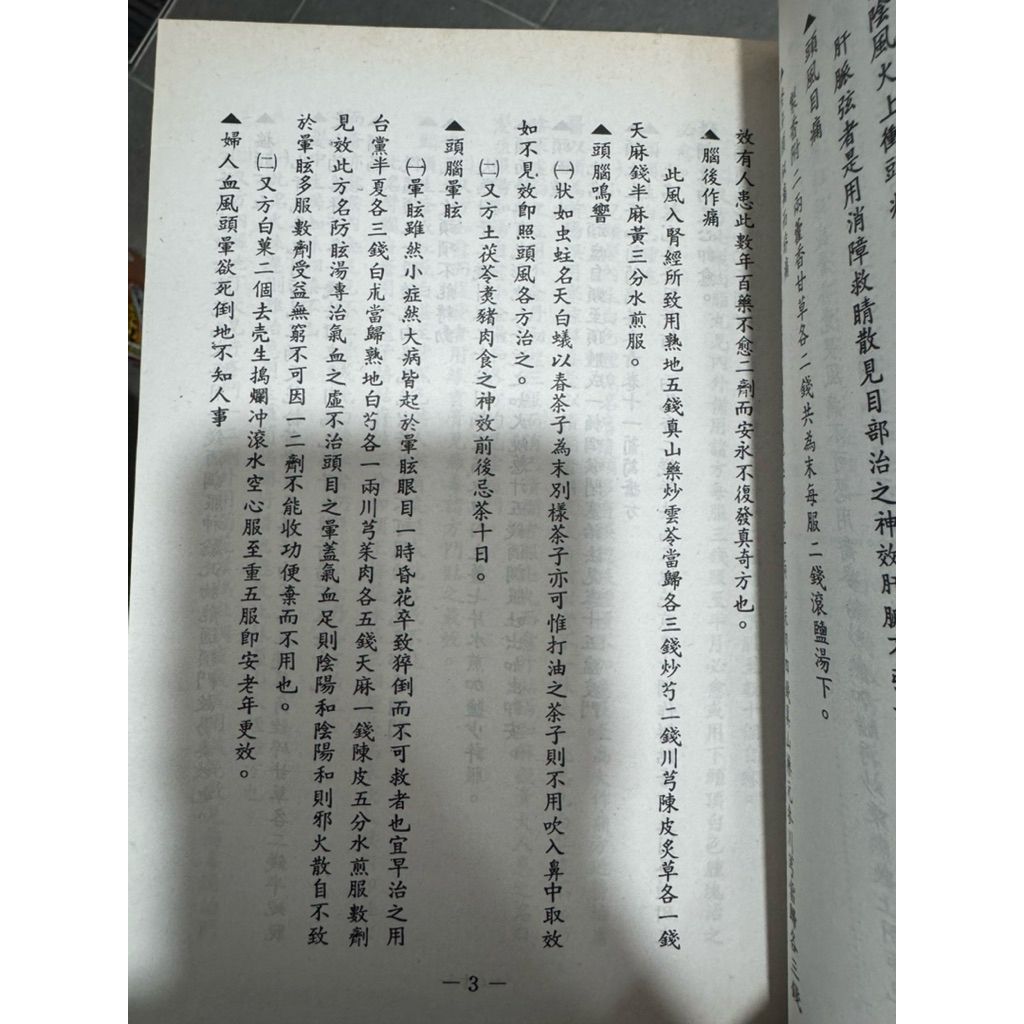 陰風火上衝頭
肝脈弦者是用消障救睛散見目部治之神效肝脈
▲頭風目痛
香附二兩藿香甘草各二錢共為末每服二錢滾鹽湯下。
效有人患此數年百藥不愈二劑而安永不復發真奇方也。
▲腦後作痛
此風入腎經所致用熟地五錢真山藥炒雲苓當歸各三錢炒芍二錢川芎陳皮炙草各一錢
天麻錢半麻黃三分水煎服。
▲頭腦鳴響
㈠狀如虫蛀名天白蟻以春茶子為末別樣茶子亦可惟打油之茶子則不用吹入鼻中取效
如不見效即照頭風各方治之。
㈡又方土茯苓煮豬肉食之神效前後忌茶十日。
▲頭腦暈眩
㈠暈眩雖然小症然大病皆起於暈眩眼目一時昏花卒致猝倒而不可救者也宜早治之用
台黨半夏各三錢白朮當歸熟地白芍各一兩川芎茱肉各五錢天麻一錢陳皮五分水煎服數劑
見效此方名防眩湯專治氣血之虛不治頭目之暈蓋氣血足則陰陽和陰陽和則邪火散自不致
於暈眩多服數劑受益無窮不可因一二劑不能收功便棄而不用也。
㈡又方白菓二個去壳生搗爛冲滾水空心服至重五服即安老年更效。
▲婦人血風頭暈欲死倒地不知人事
—3—